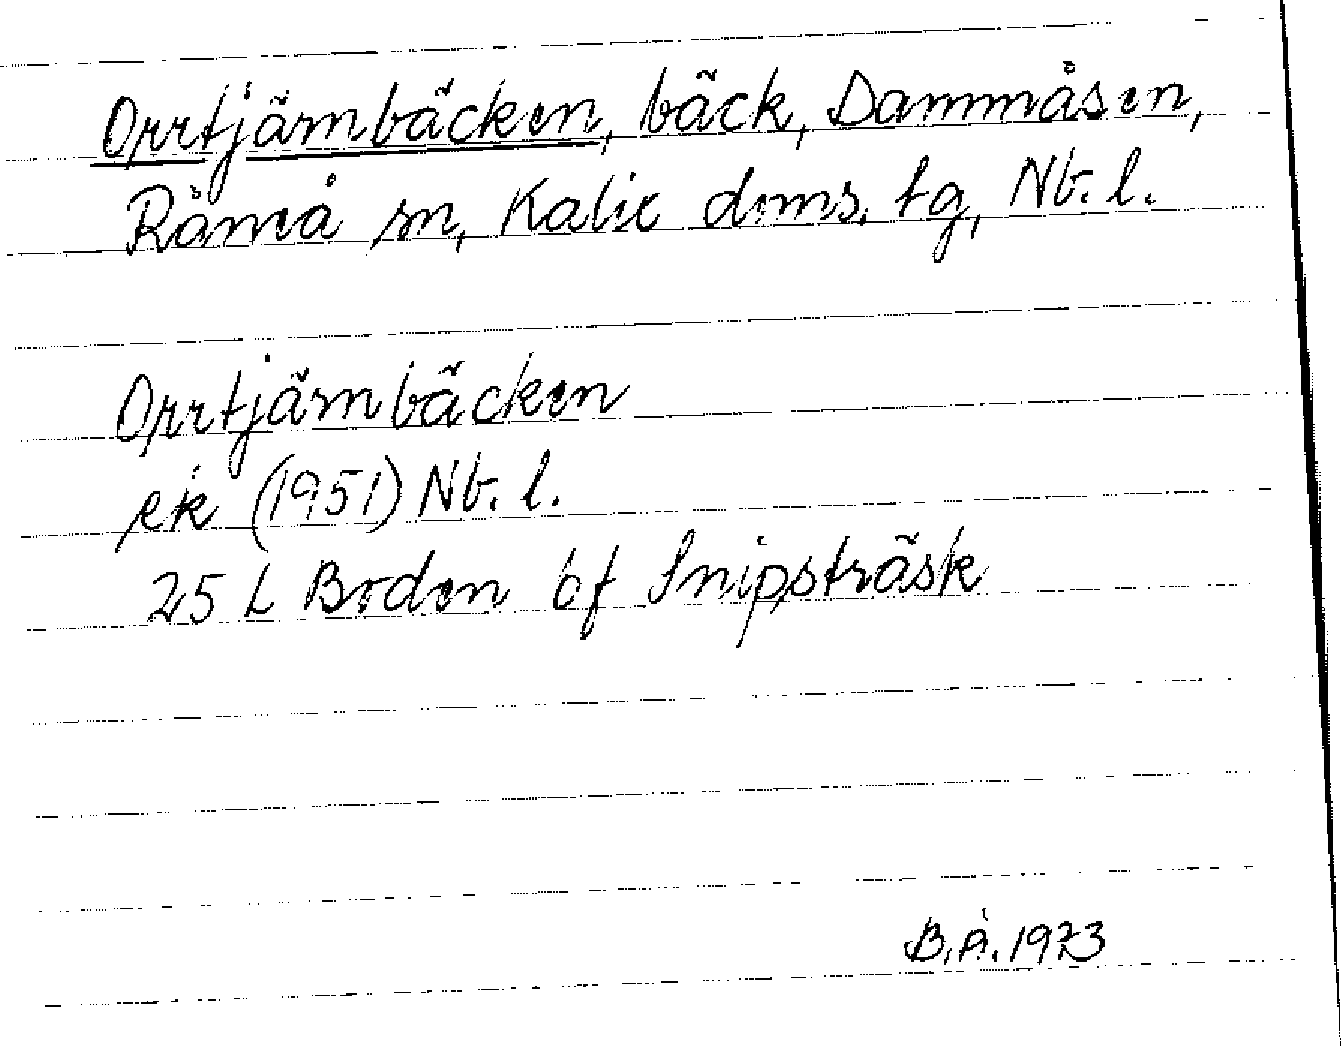 Orrtjärnbäcken, bäck, Dammåsen,
Råneå sn, Kalix doms. tg, Nb. l.
Orrtjärnbäcken
ek (1951) Nb. l.
25 L Boden bf Snipsträsk
B.Å. 1973